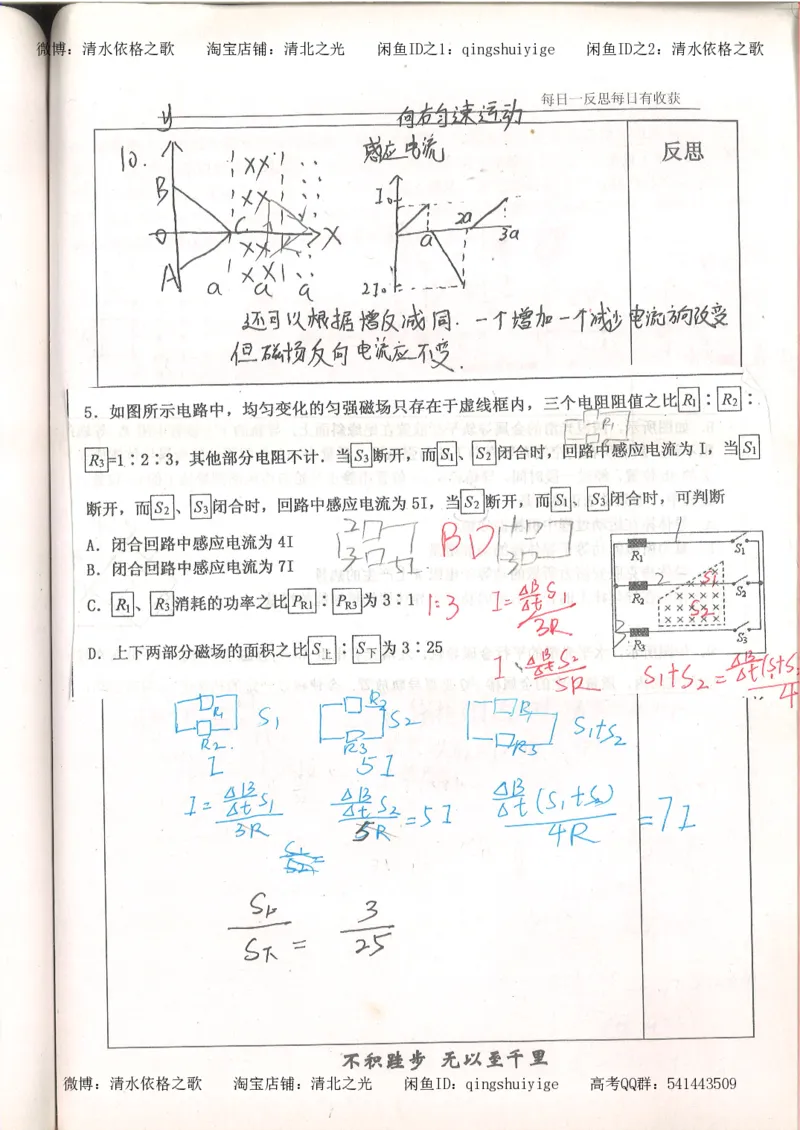 微博：清水依格之歌 淘宝店铺：清北之光 闲鱼ID之1：qingshuiyige 闲鱼ID之2：清水依格之歌
每日一反思每日有收获
向右匀速运动
10. y 感应电流 反思
B
O C X
A
a a a
I₀
a 2a 3a
2I₀
还可以根据增反减同. 一个增加一个减少电流方向改变
但磁场反向电流应不变.
5．如图所示电路中，均匀变化的匀强磁场只存在于虚线框内，三个电阻阻值之比R₁：R₂：
R₃=1：2：3，其他部分电阻不计．当S₃断开，而S₁、S₂闭合时，回路中感应电流为 I，当S₁
断开，而S₂、S₃闭合时，回路中感应电流为 5I，当S₂断开，而S₁、S₃闭合时，可判断
A．闭合回路中感应电流为 4I
B．闭合回路中感应电流为 7I
C．R₁、R₃消耗的功率之比 P_R1：P_R3为 3：1 1:3
D．上下两部分磁场的面积之比S上：S下为 3：25
BD
R₁ S₁
R₂ S₂
R₃ S₃
I = ΔB/Δt S₁ / 3R
ΔB/Δt S₂ / 5R
S₁+S₂ =
R₁ R₂ S₁ R₂ R₃ S₂ R₁ R₃ S₁+S₂
I 5I
I = ΔB/Δt S₁ / 3R ΔB/Δt S₂ / 5R = 5I ΔB/Δt (S₁+S₂) / 4R = 7I
S上/S下 = 3/25
不积跬步 无以至千里
微博：清水依格之歌 淘宝店铺：清北之光 闲鱼ID：qingshuiyige 高考QQ群：541443509